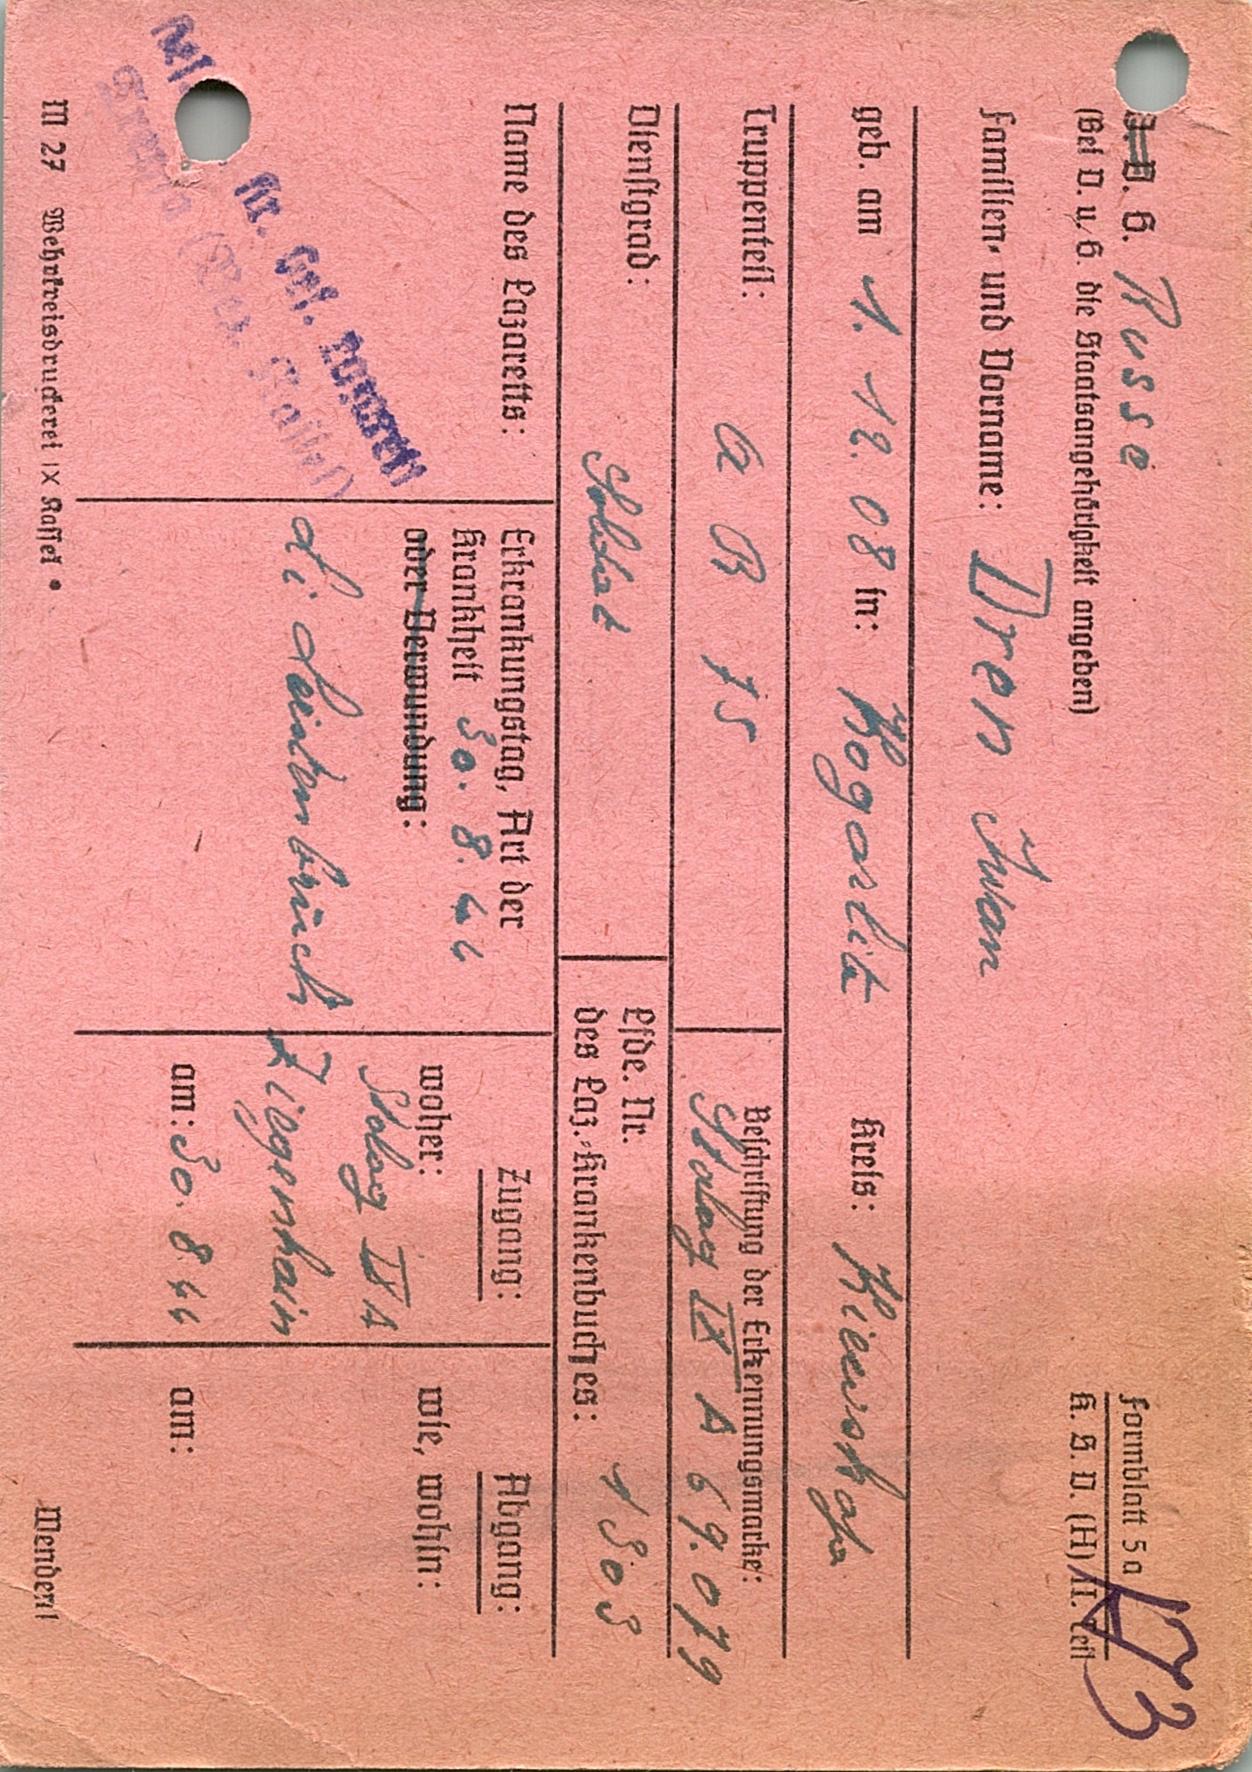 Formblatt 5a
K. S. D. (H) II. Teil
173
V. D. G. Russe
(Bei D. u. G. die Staatsangehörigkeit angeben)
Familien- und Vorname: Dren Iwan
geb. am 1. 12. 08 in: Kogarlik Kreis: Kiewskaja
Truppenteil: A B 75
Beschriftung der Erkennungsmarke:
Stalag IX A 69.079
Dienstgrad: Soldat
Lfde. Nr.
des Laz.-Krankenbuches: 1303
Name des Lazaretts:
Kr. Gef. Lazarett
Erkrankungstag, Art der
Krankheit 30. 8. 44
oder Verwundung:
Zugang:
woher:
Stalag IX A
Ziegenhain
am: 30. 8. 44
Abgang:
wie, wohin:
am:
M 27 Wehrkreisdruckerei IX Kassel •
Wenden!